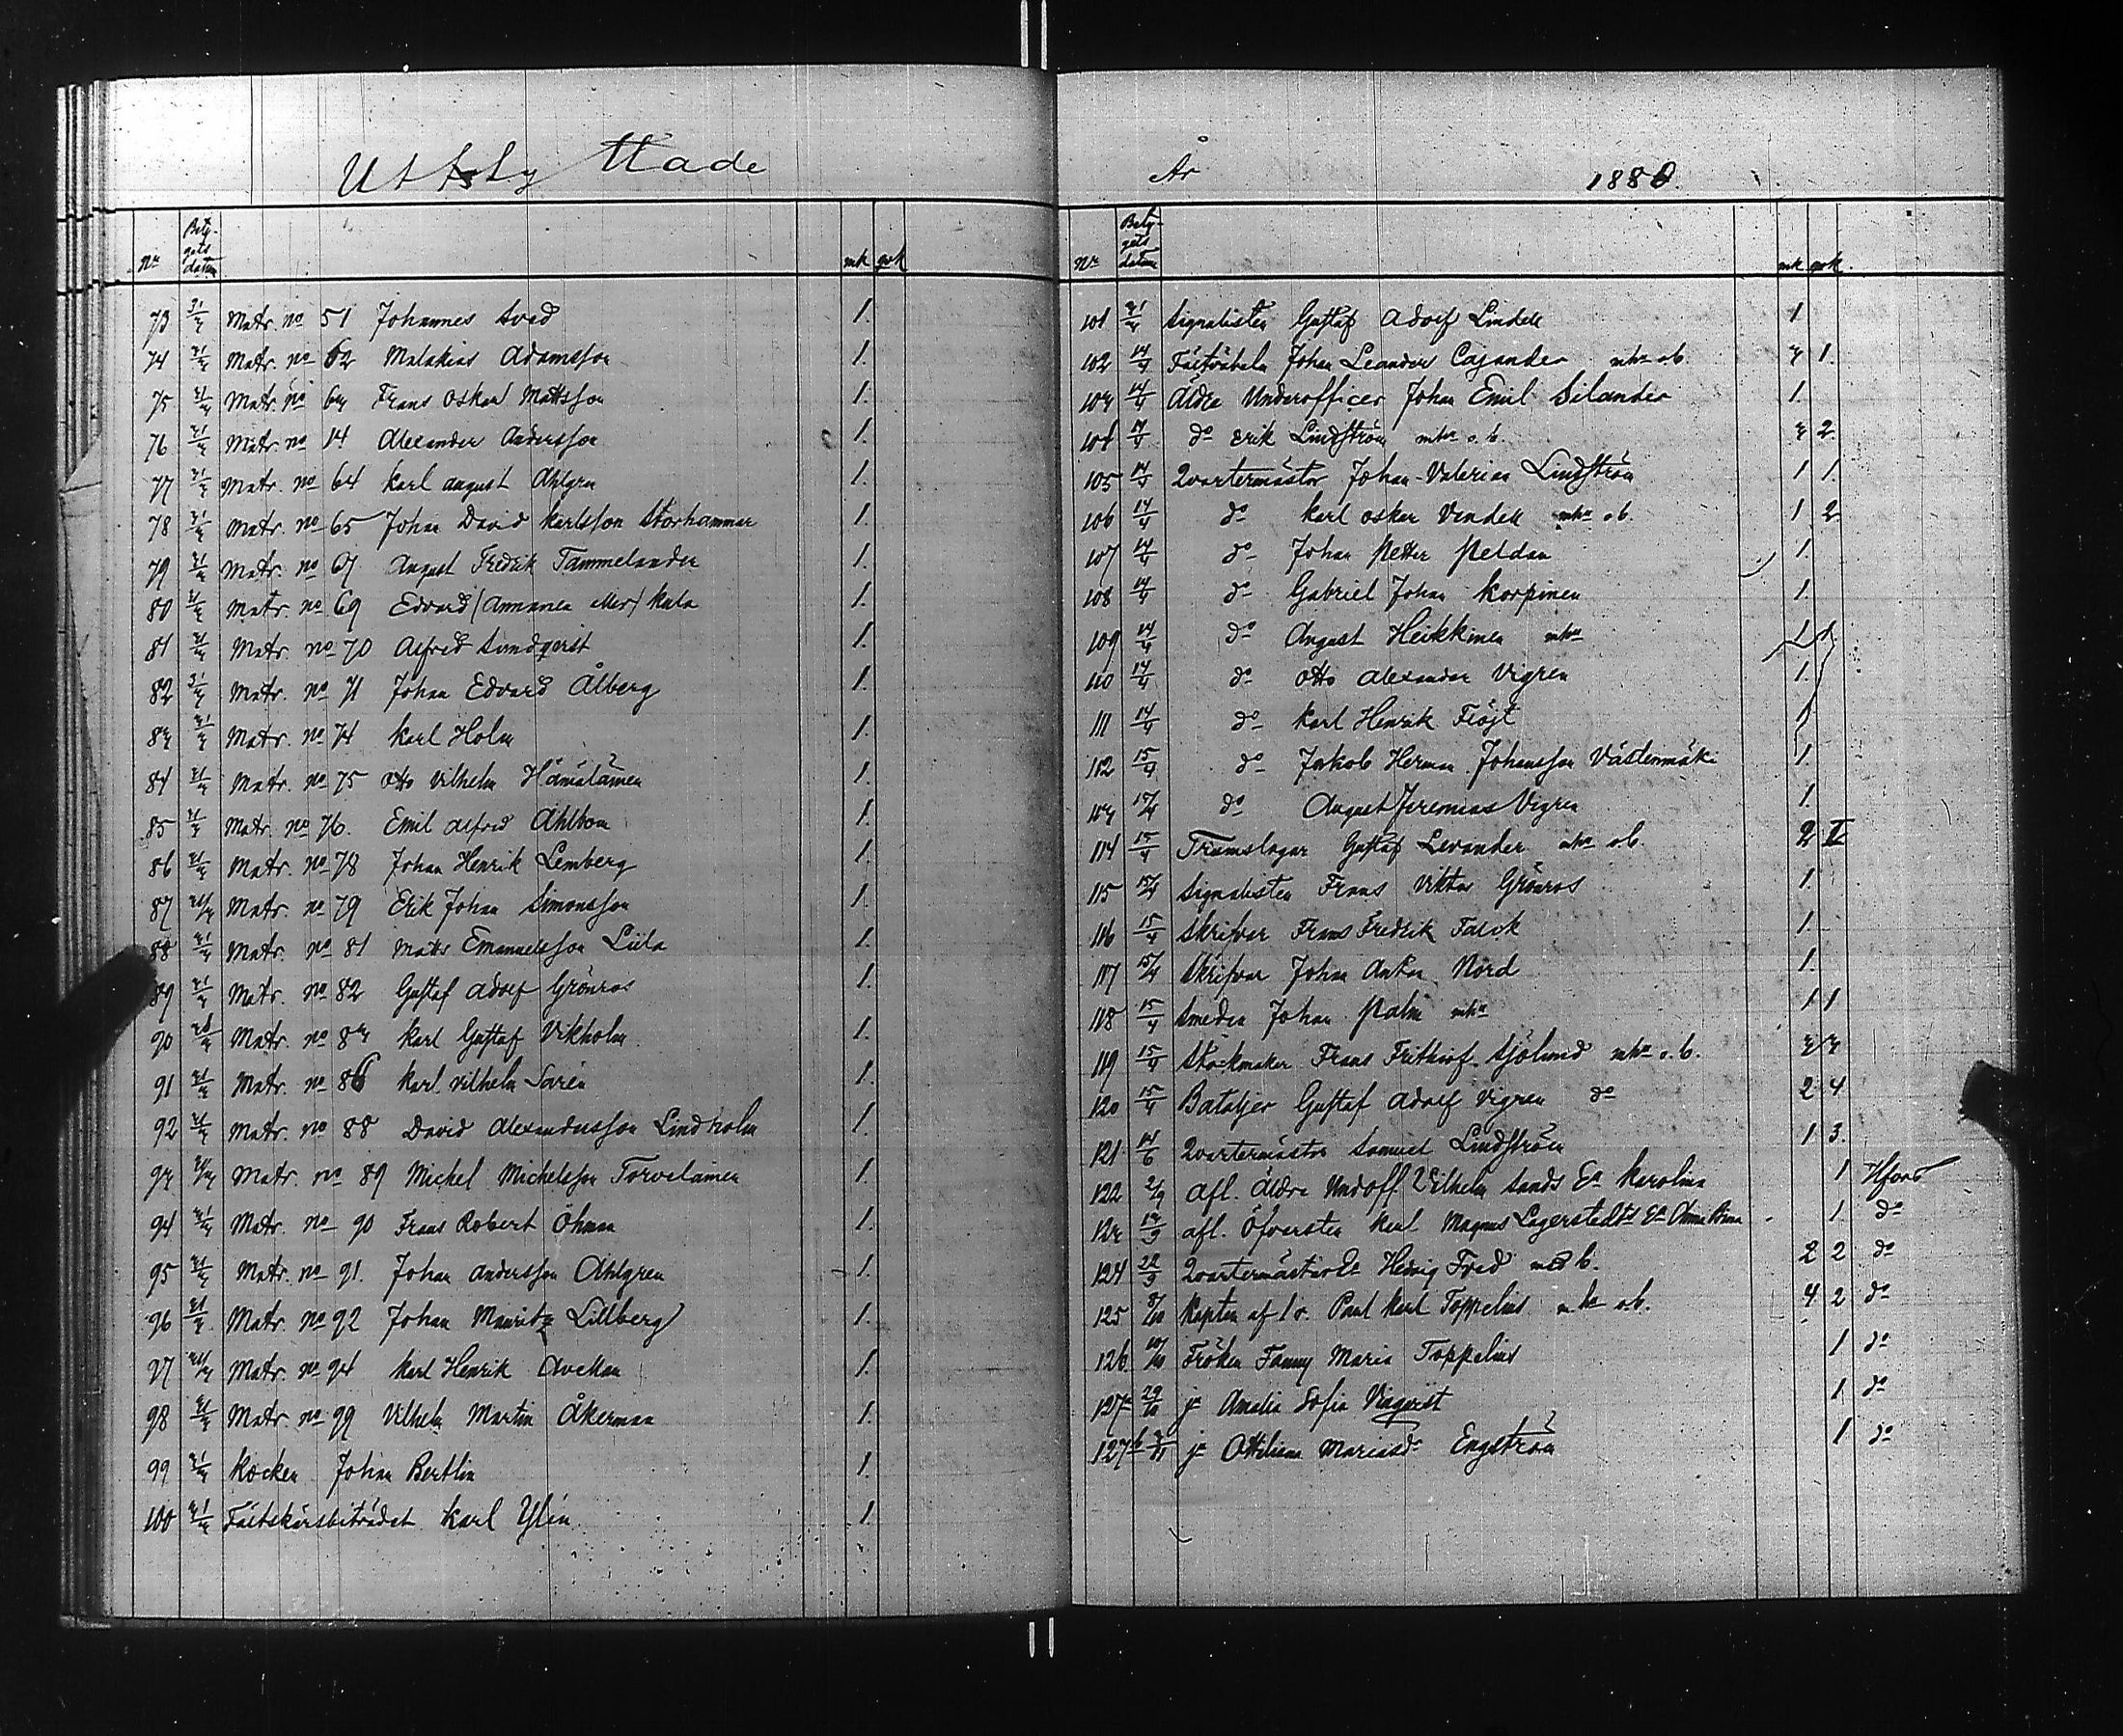 Utflyttade
Nr Betygets datum mk qvk
73 31/3 Matr. no 51 Johannes Svad 1.
74 31/3 Matr. no 62 Malakias Adamsson 1.
75 31/3 Matr. no 63 Frans Oskar Mattsson 1.
76 31/3 Matr. no 14 Alexander Andersson 1.
77 31/3 Matr. no 64 Karl August Ahlgren 1.
78 31/3 Matr. no 65 Johan David Karlsson Storhammar 1.
79 31/3 Matr. no 67 August Fredrik Tammelander 1.
80 31/3 Matr. no 69 Edvard / Kula 1.
81 31/3 Matr. no 70 Alfred Sundqvist 1.
82 31/3 Matr. no 71 Johan Edvard Ålberg 1.
83 31/3 Matr. no 74 Karl Holm 1.
84 31/3 Matr. no 75 Otto Vilhelm Hämäläinen 1.
85 31/3 Matr. no 76. Emil Alfred Ahlbom 1.
86 31/3 Matr. no 78 Johan Henrik Lemberg 1.
87 31/3 Matr. no 79 Erik Johan Simonsson 1.
88 31/3 Matr. no 81 Matts Emanuelsson Liila 1.
89 31/3 Matr. no 82 Gustaf Adolf Grönros 1.
90 31/3 Matr. no 83 Karl Gustaf Vikholm 1.
91 31/3 Matr. no 86 Karl Vilhelm Sarén 1.
92 31/3 Matr. no 88 David Alexandersson Lindholm 1.
93 31/3 Matr. no 89 Mickel Mickelsson Torvelainen 1.
94 31/3 Matr. no 90 Frans Robert Öhman 1.
95 31/3 Matr. no 91. Johan Andersson Ahlgren 1.
96 31/3 Matr. no 92 Johan Mauritz Lillberg 1.
97 31/3 Matr. no 94 Karl Henrik 1.
98 31/3 Matr. no 99 Vilhelm Martin Åkerman 1.
99 31/3 Kocken Johan Bertlin 1.
100 31/3 Fältskärsbiträdet Karl Ylén 1.
År 1880.
Nr Betygets datum mk qvk.
101 31/3 Signalisten Gustaf Adolf Lindell 1
102 14/4 Fältväbeln Johan Leander Cajander m hu o b 3 1.
103 14/4 Äldre Underofficer Johan Emil Silander 1.
104 14/4 do Erik Lindström m hu o. b. 3 2
105 14/4 Qvartermästar Johan Valerian Lindström 1 1.
106 14/4 do Karl Oskar Vendell m hu o b. 1 2
107 14/4 do Johan Petter Peldan 1.
108 14/4 do Gabriel Johan Korpinen 1.
109 14/4 do August Heikkinen m hu 1 1.
110 14/4 do Otto Alexander Vigren 1.
111 14/4 do Karl Henrik Flöjt 1
112 15/4 do Jakob Herman Johansson Västenmäki 1.
113 15/4 do August Jeremias Vigren 1.
114 15/4 Trumslagar Gustaf Levander m hu o b. 2 II
115 15/4 Signalisten Frans Viktor Grönros 1.
116 15/4 Skrifvar Frans Fredrik Falck 1.
117 15/4 Skrifvar Johan Anton Nord 1.
118 15/4 Smeden Johan Palm m hu 1 1
119 15/4 Stockmakar Frans Frithiof Sjölund m hu o. b. 3 3
120 15/4 Bataljer Gustaf Adolf Vigren do 2 4
121 14/6 Qvartermästar Samuel Lindström 1 3.
122 2/9 Afl. Äldre Undoff. Vilhelm Sands Ea Karolina 1 Hfors
123 13/9 Afl. Öfversten Karl Magnus Lagerstedts Ea Anna 1. do
124 22/9 Qvartermästar Ea Hedvig Fred m 3 b. 2 2 do
125 8/10 Kapten af 1 o. Paul Karl Toppelius m hu o b. 4 2 do
126 10/10 Fröken Fanny Maria Toppelius 1 do
127a 29/10 ja Amalia Sofia Vinqvist 1. do
127b 3/11 ja Ottiliana Mariasdr Engström 1 do